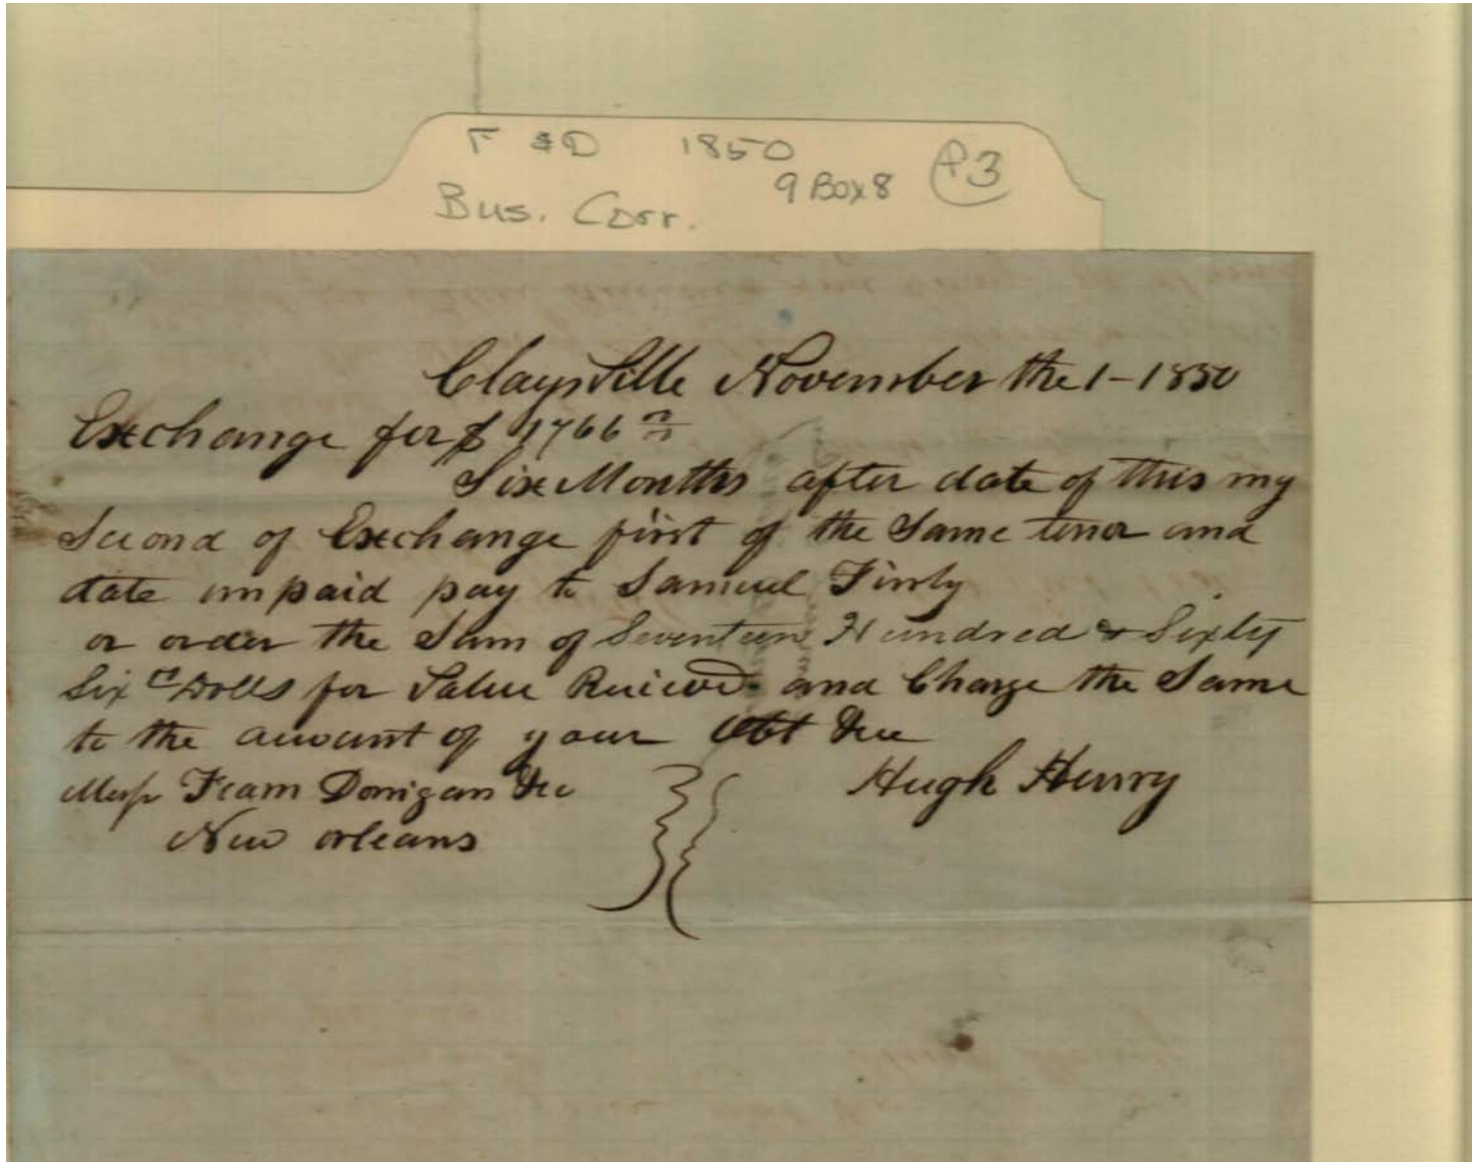 F & D 1850
9 Box 8 P3
Bus. Corr.
Claysville November the 1 - 1850
Exchange for $ 1766
Six Months after date of this my
Second of Exchange first of the Same tenor and
date unpaid pay to Samuel Finly
or order the Sum of Seventeen Hundred & Sixty
Six Dolls for Value Recieved and Charge the Same
to the amount of your Obt
Hugh Henry
Messrs Fearn Donigan &c
New orleans